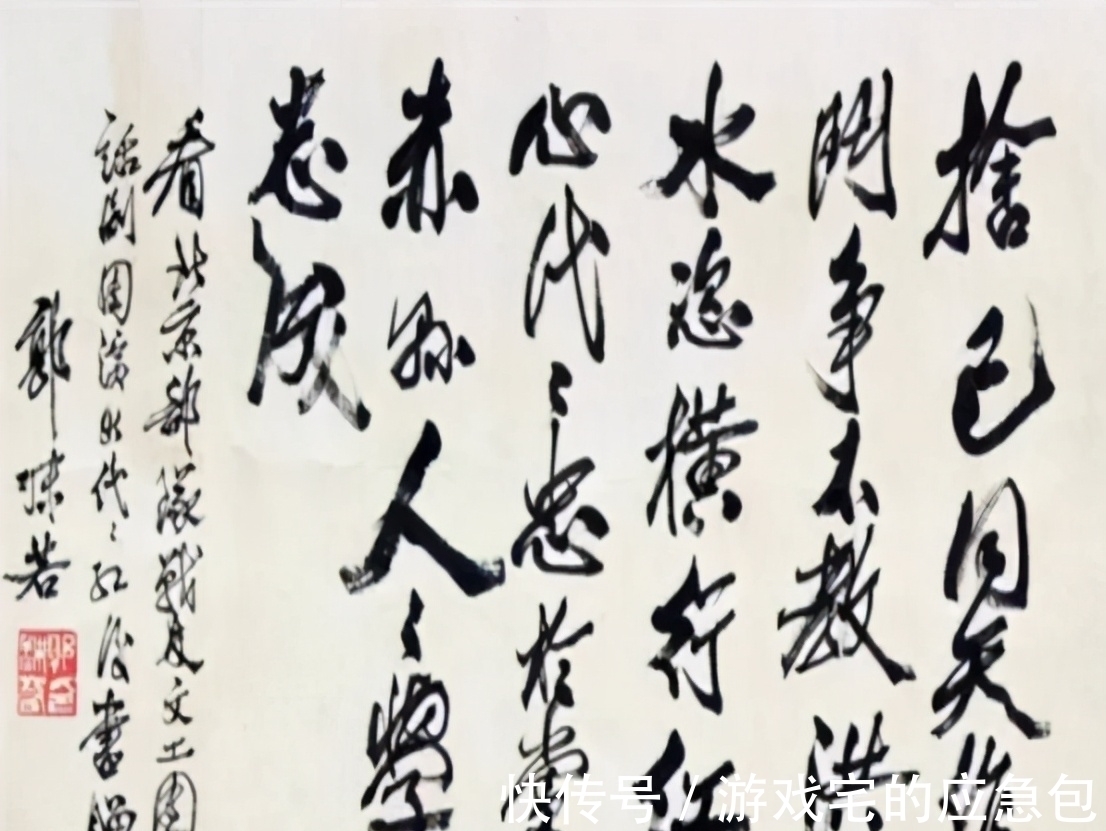 捨己同天
鬥爭不教洪
水恣橫行紅
心代〻忠於黨
赤縣人〻學
志成
看北京部隊戰友文工團
話劇團演出代〻紅後書贈
郭沫若
快传号 / 游戏宅的应急包